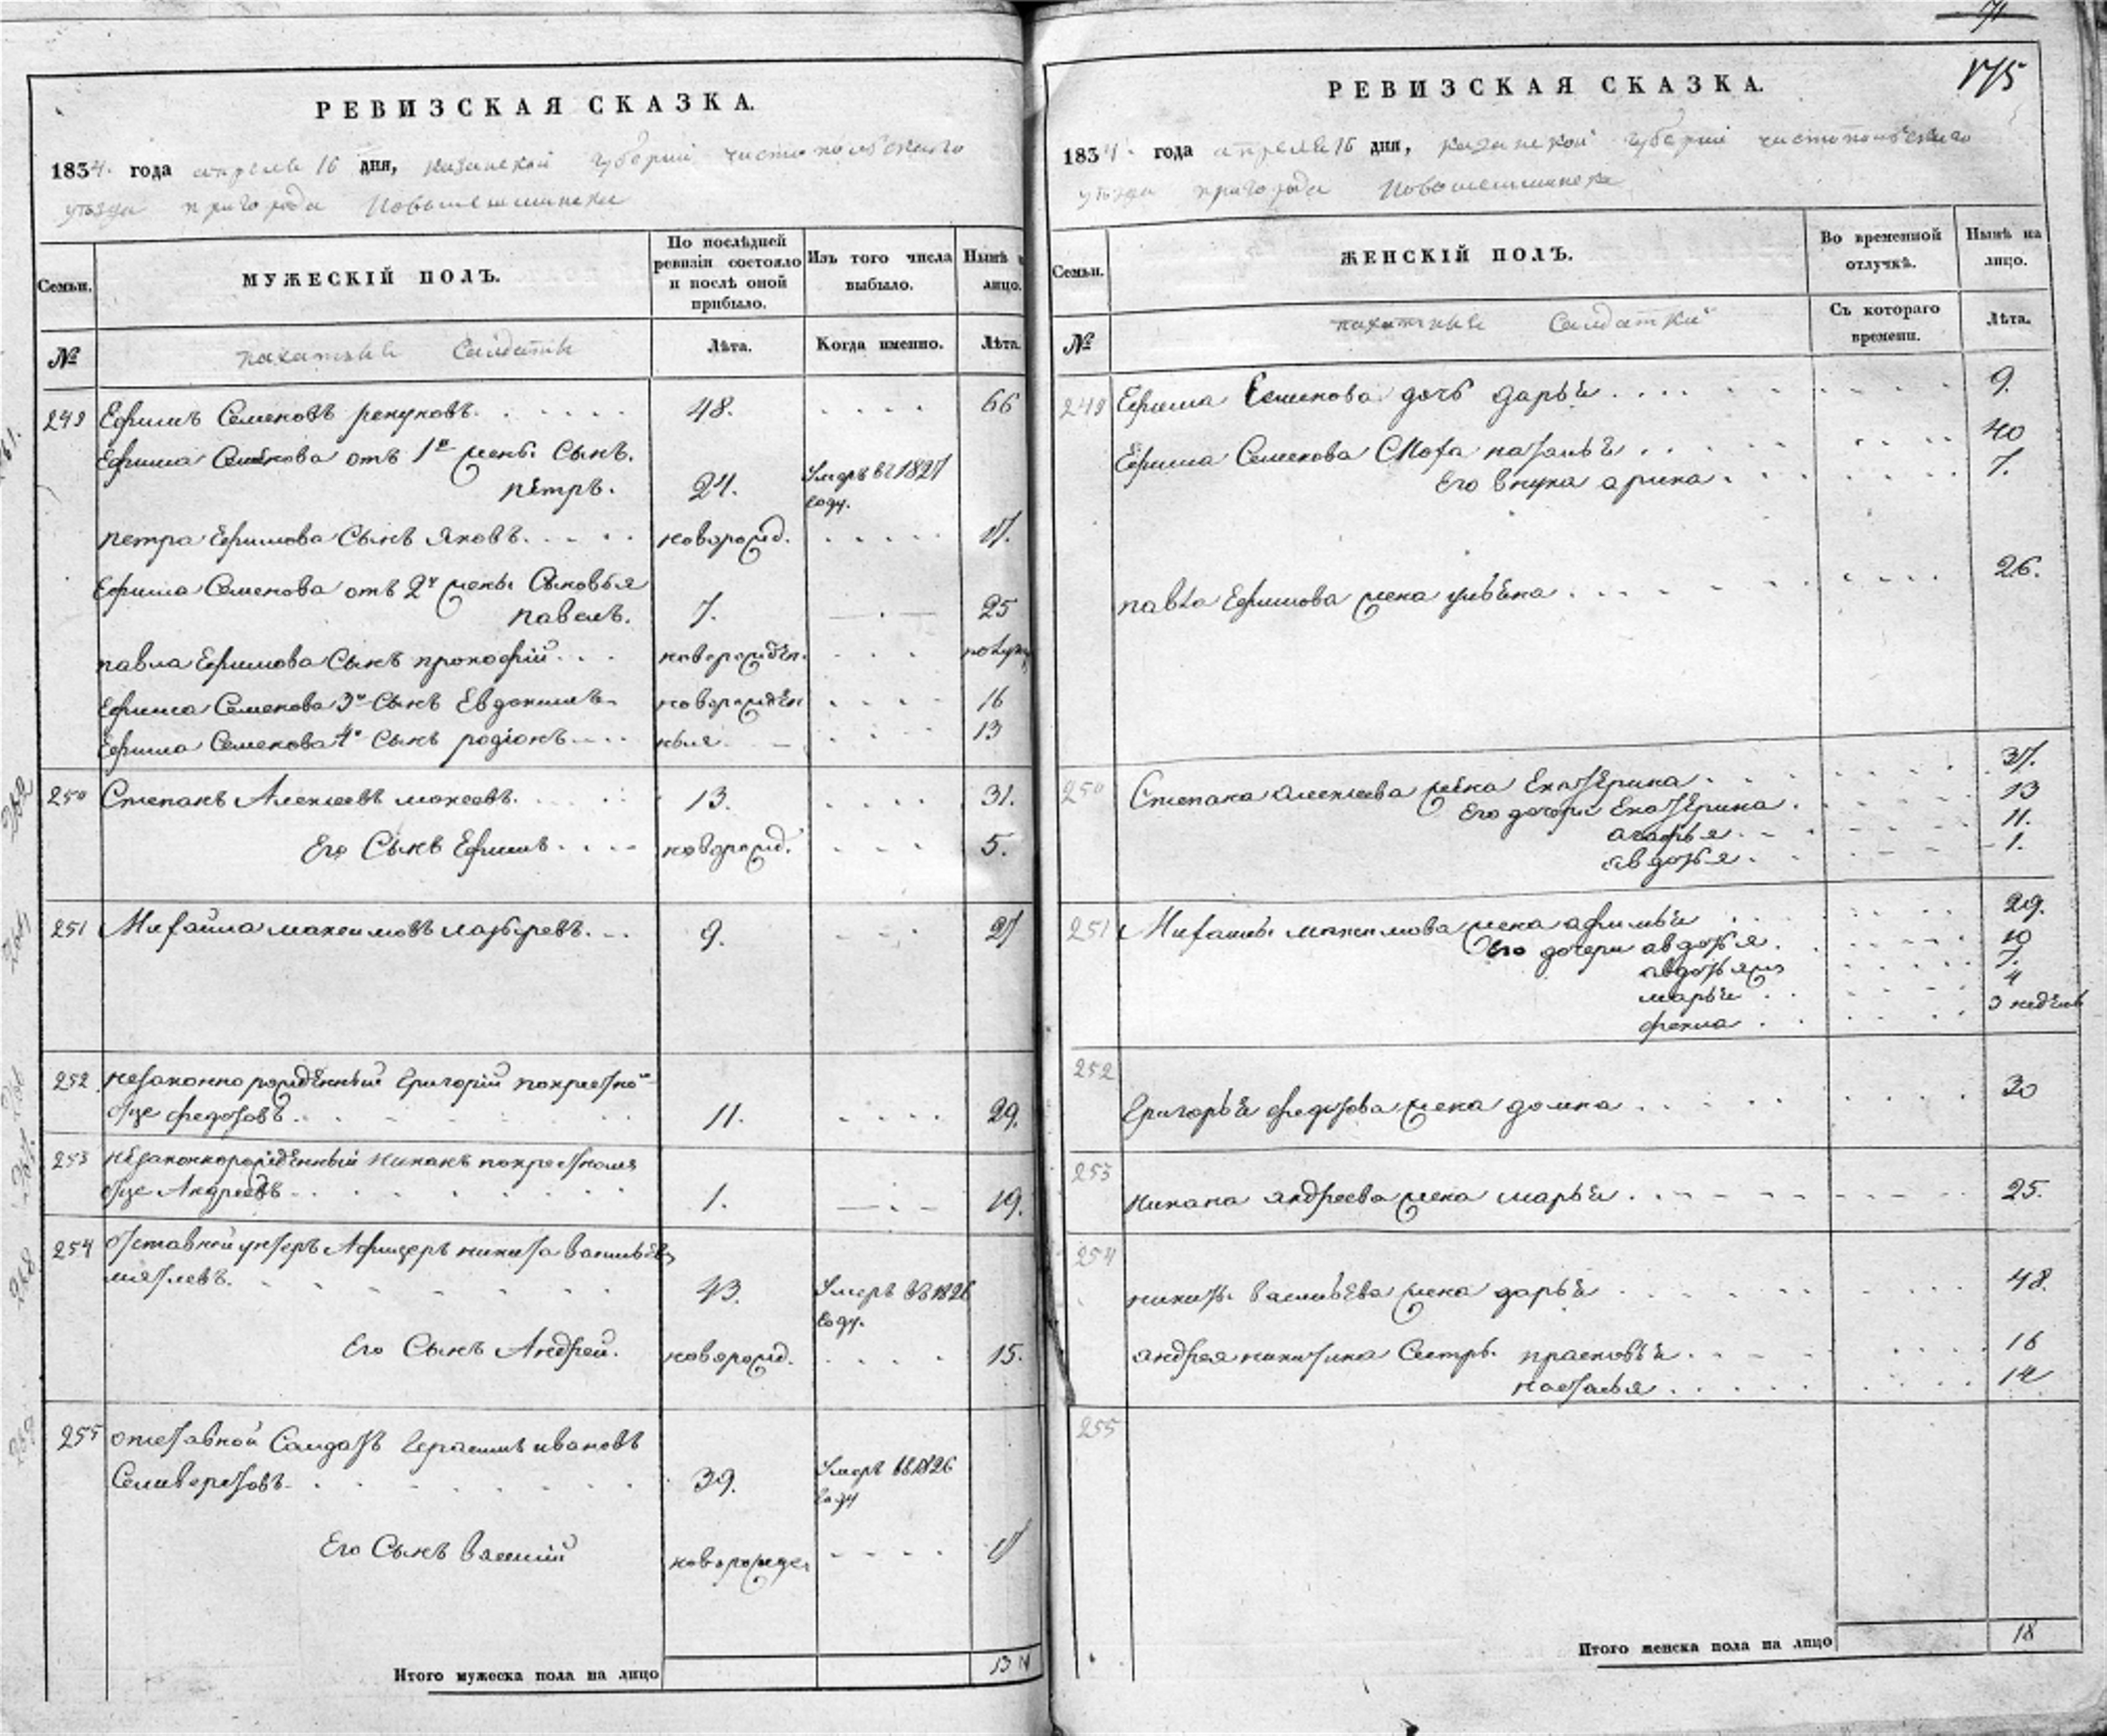 РЕВИЗСКАЯ СКАЗКА.
1834. года апреля 16 дня, казанской губернии чистопольскаго
уѣзда пригорода Новошешминска
Семьи.
МУЖЕСКІЙ ПОЛЪ.
По послѣдней ревизіи состояло и послѣ оной прибыло.
Изъ того числа выбыло.
Нынѣ лицо.
№
пахатныя Салдаты
Лѣта.
Когда именно.
Лѣта.
249 Ефимъ Семеновъ 48. 66
Ефима Семенова отъ 1й жены Сынъ.
петръ. 24. Умеръ въ 1827
году.
петра Ефимова Сынъ Яковъ новорожд. 17.
Ефима Семенова отъ 2й жены Сыновья
павелъ. 7. 25
павла Ефимова Сынъ прокофій новорожден.
Ефима Семенова 3й Сынъ Евдокимъ новорожден 16
Ефима Семенова 4й Сынъ родіонъ 13
250 Степанъ Алексеевъ мокеевъ. 13. 31.
Его Сынъ Ефимъ новорожд. 5.
251 Михайла максимовъ 9. 27
252 незаконнорожденный Григорій покрестно
отце федотовъ 11. 29.
253 незаконнорожденный никонъ покрестному
отце Андреевъ 1. 19.
254 отставной унтеръ Афицеръ никита васильев
мятлевъ. 43. Умеръ въ 1826
году.
Его Сынъ Андрей. новорожд. 15.
255 отставной Салдатъ Герасимъ ивановъ
Селиверстовъ 39. Умеръ въ 1826
году
Его Сынъ василій новорожде. 17
Итого мужеска пола на лицо 13
71
175
РЕВИЗСКАЯ СКАЗКА.
1834. года апреля 16 дня, казанской губернии чистопольскаго
уѣзда пригорода Новошешминска
Семьи.
ЖЕНСКІЙ ПОЛЪ.
Во временной отлучкѣ.
Нынѣ на лицо.
№
пахатныя Салдатки
Съ котораго времени.
Лѣта.
249 Ефима Семенова дочь дарья 9.
Ефима Семенова сноха наталья 40
Его внука арина 7.
павла Ефимова жена ульяна 26.
250 Степана алексеева жена Екатерина 37.
Его дочери Екатерина 13
агафья 11.
авдотья 1.
251 Михаилы максимова жена афимья 29.
Его дочери авдотья 10
авдотья ж 7.
марья 4
фекла 3 недели
252
Григорья федотова жена домна 30
253
никона андреева жена марья 25.
254
никиты васильева жена дарья 48.
андрея никитина Сестры прасковья 16
настасья 12
255
Итого женска пола на лицо 18